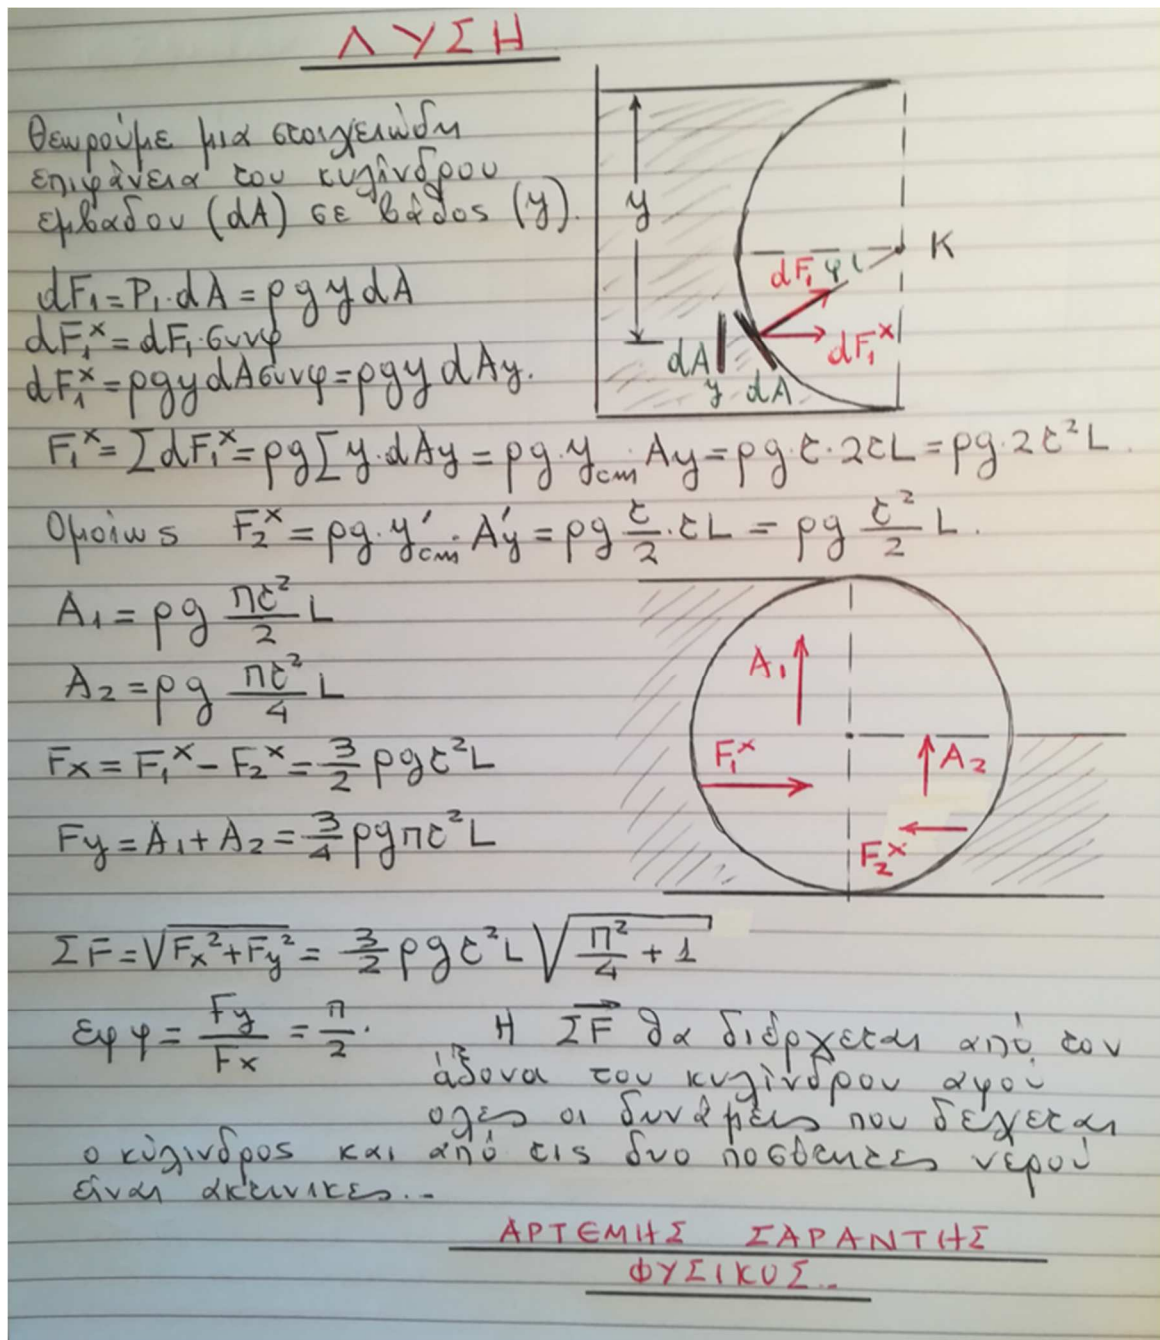 ΛΥΣΗ
Θεωρούμε μια στοιχειώδη
επιφάνεια του κυλίνδρου
εμβαδού (dA) σε βάθος (y).
dF₁ = P₁·dA = ρgydA
dF₁ˣ = dF₁·συνφ
dF₁ˣ = ρgydAσυνφ = ρgy dAy.
y
K
dF₁ φ
dF₁ˣ
dA
y dA
F₁ˣ = ΣdF₁ˣ = ρgΣy·dAy = ρg·ycm·Ay = ρg·τ·2τL = ρg·2τ²L.
Ομοίως F₂ˣ = ρg·y′cm·A′y = ρg τ/2·τL = ρg τ²/2 L.
A₁ = ρg πτ²/2 L
A₂ = ρg πτ²/4 L
Fx = F₁ˣ - F₂ˣ = 3/2 ρgτ²L
Fy = A₁ + A₂ = 3/4 ρgπτ²L
A₁
F₁ˣ
A₂
F₂ˣ
ΣF = √(Fx² + Fy²) = 3/2 ρgτ²L √(π²/4 + 1)
εφφ = Fy/Fx = π/2. Η ΣF⃗ θα διέρχεται από τον
άξονα του κυλίνδρου αφού
όλες οι δυνάμεις που δέχεται
ο κύλινδρος και από τις δυο ποσότητες νερού
είναι ακτινικές...
ΑΡΤΕΜΗΣ ΣΑΡΑΝΤΗΣ
ΦΥΣΙΚΟΣ...